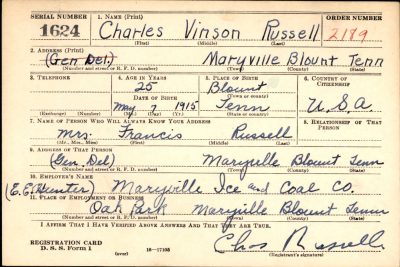 SERIAL NUMBER 1. NAME (Print) ORDER NUMBER
1624 Charles Vinson Russell 2179
(First) (Middle) (Last)
2. ADDRESS (Print)
(Gen Del.) Maryville Blount Tenn
(Number and street or R. F. D. number) (Town) (County) (State)
3. TELEPHONE 4. AGE IN YEARS 5. PLACE OF BIRTH 6. COUNTRY OF CITIZENSHIP
25 Blount
DATE OF BIRTH (Town or county)
May 1915 Tenn U.S.A
(Exchange) (Number) (Mo.) (Day) (Yr.) (State or country)
7. NAME OF PERSON WHO WILL ALWAYS KNOW YOUR ADDRESS 8. RELATIONSHIP OF THAT PERSON
Mrs. Francis Russell
(Mr., Mrs., Miss) (First) (Middle) (Last)
9. ADDRESS OF THAT PERSON
(Gen. Del) Maryville Blount Tenn
(Number and street or R. F. D. number) (Town) (County) (State)
10. EMPLOYER'S NAME
(E.E. Hunter) Maryville Ice and Coal Co.
11. PLACE OF EMPLOYMENT OR BUSINESS
Oak Park Maryville Blount Tenn
(Number and street or R. F. D. number) (Town) (County) (State)
I AFFIRM THAT I HAVE VERIFIED ABOVE ANSWERS AND THAT THEY ARE TRUE.
REGISTRATION CARD
D. S. S. Form 1 (over) 16—17105 Chas Russell.
(Registrant's signature)